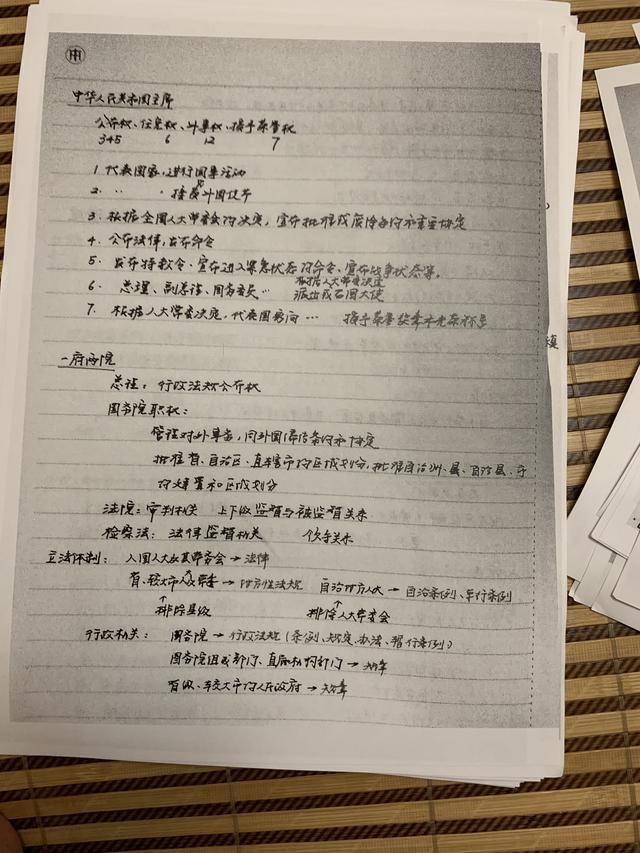 中华人民共和国主席
公布权、任免权、外事权、授予荣誉权
345 6 12 7
1. 代表国家,进行国事活动
2. 〃 〃 接受外国使节
3. 根据全国人大常委会的决定,宣布批准或废除条约和重要协定
4. 公布法律,发布命令
5. 发布特赦令、宣布进入紧急状态的命令、宣布战争状态等。
6. 总理、副总理、国务委员… 根据人大常委决定
派出或召回大使
7. 根据人大常委决定,代表国家向… 授予荣誉奖章和光荣称号
一府两院
总理:行政法规公布权
国务院职权:
管理对外事务,同外国缔结条约和协定
批准省、自治区、直辖市的区域划分,批准自治州、县、自治县、市
的建置和区域划分
法院:审判机关 上下级监督与被监督关系
检察法:法律监督机关 领导关系
立法体制: 全国人大及其常委会→法律
省、较大市人大常委→地方性法规 自治地方人大→自治条例、单行条例
↑排除县级 ↑排除人大常委会
行政机关: 国务院→行政法规(条例、规定、办法、暂行条例)
国务院组成部门、直属机构部门→规章
省级、较大市的人民政府→规章